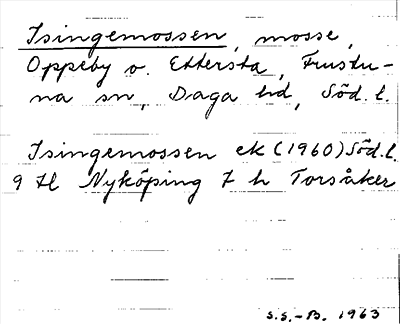 Isingemossen, mosse,
Oppeby o. Ettersta, Frustu-
na sn, Daga hd, Söd. l.
Isingemossen ek (1960) Söd. l.
9 H Nyköping 7 h Torsåker
S.S.-B. 1963